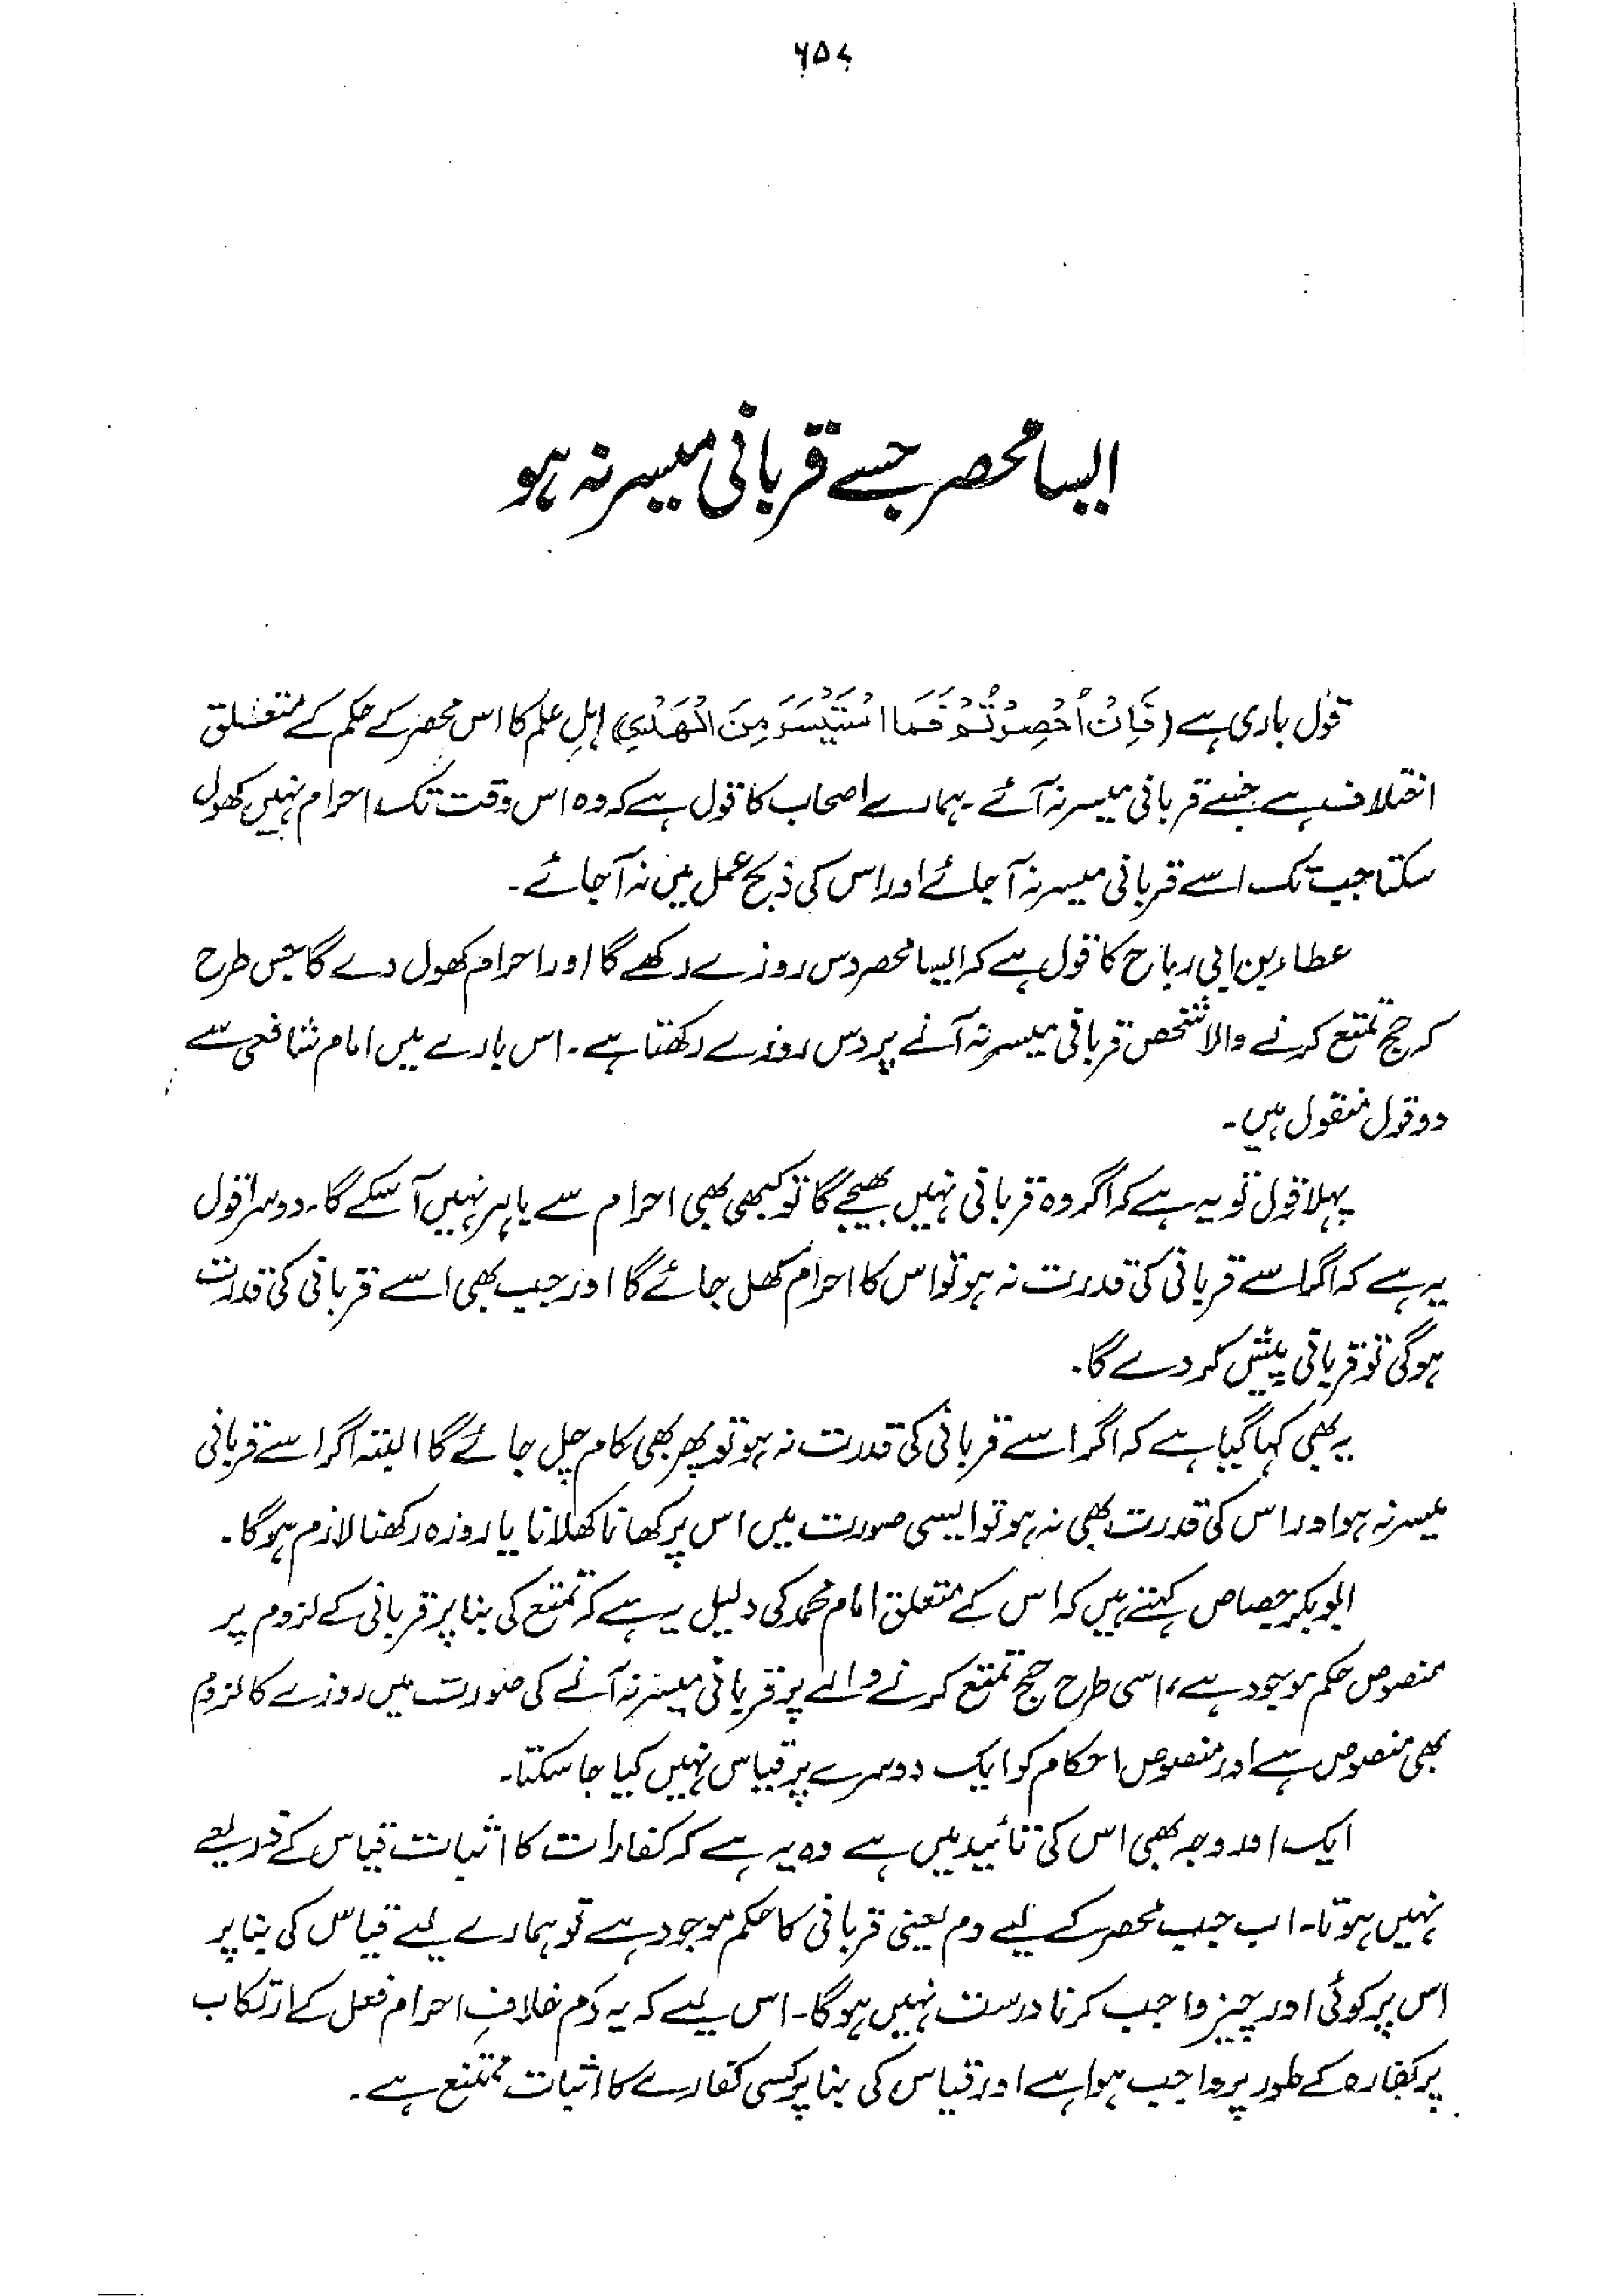 ۶۵۷
ایسا محصر جسے قربانی میسر نہ ہو
قول باری ہے (فَاِنْ اُحْصِرْتُمْ فَمَا اسْتَيْسَرَ مِنَ الْهَدْيِ) اہلِ علم کا اس محصر کے حکم کے متعلق
اختلاف ہے جسے قربانی میسر نہ آئے۔ ہمارے اصحاب کا قول ہے کہ وہ اس وقت تک احرام نہیں کھول
سکتا جب تک اسے قربانی میسر نہ آ جائے اور اس کی ذبح عمل میں نہ آ جائے۔
عطاء بن ابی رباح کا قول ہے کہ ایسا محصر دس روزے رکھے گا اور احرام کھول دے گا جس طرح
کہ حج تمتع کرنے والا شخص قربانی میسر نہ آنے پر دس روزے رکھتا ہے۔ اس بارے میں امام شافعی سے
دو قول منقول ہیں۔
پہلا قول تو یہ ہے کہ اگر وہ قربانی نہیں بھیجے گا تو کبھی بھی احرام سے باہر نہیں آ سکے گا۔ دوسرا قول
یہ ہے کہ اگر اسے قربانی کی قدرت نہ ہو تو اس کا احرام کھل جائے گا اور جب بھی اسے قربانی کی قدرت
ہوگی تو قربانی پیش کر دے گا۔
یہ بھی کہا گیا ہے کہ اگر اسے قربانی کی قدرت نہ ہو تو پھر بھی کام چل جائے گا البتہ اگر اسے قربانی
میسر نہ ہو اور اس کی قدرت بھی نہ ہو تو ایسی صورت میں اس پر کھانا کھلانا یا روزہ رکھنا لازم ہوگا۔
ابوبکر جصاص کہتے ہیں کہ اس کے متعلق امام محمد کی دلیل یہ ہے کہ تمتع کی بنا پر قربانی کے لزوم پر
منصوص حکم موجود ہے، اسی طرح حج تمتع کرنے والے پر قربانی میسر نہ آنے کی صورت میں روزے کا لزوم
بھی منصوص ہے اور منصوص احکام کو ایک دوسرے پر قیاس نہیں کیا جا سکتا۔
ایک اور وجہ بھی اس کی تائید میں ہے وہ یہ ہے کہ کفارات کا اثبات قیاس کے ذریعے
نہیں ہوتا۔ اب جب محصر کے لیے دم یعنی قربانی کا حکم موجود ہے تو ہمارے لیے قیاس کی بنا پر
اس پر کوئی اور چیز واجب کرنا درست نہیں ہوگا۔ اس لیے کہ یہ دَم خلافِ احرام فعل کے ارتکاب
پر کفارہ کے طور پر واجب ہوا ہے اور قیاس کی بنا پر کسی کفارے کا اثبات ممتنع ہے۔